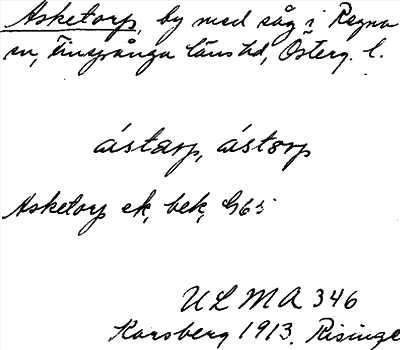 Asketorp, by med såg i Regna
sn, Finspånga läns hd, Österg. l.
ástarp, ástorp
Asketorp ek, bek, G65
ULMA 346
Karsberg 1913. Risinge